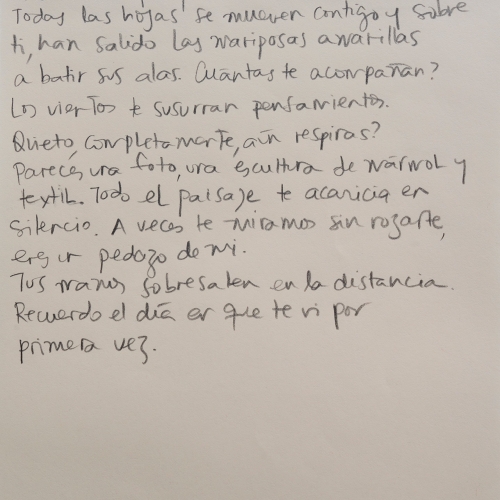 Todas las hojas se mueven contigo y sobre
ti, han salido las mariposas amarillas
a batir sus alas. Cuántas te acompañan?
Los vientos te susurran pensamientos.
Quieto, completamente, aún respiras?
Pareces una foto, una escultura de mármol y
textil. Todo el paisaje te acaricia en
silencio. A veces te miramos sin rozarte,
eres un pedazo de mi.
Tus manos sobresalen en la distancia.
Recuerdo el día en que te vi por
primera vez.